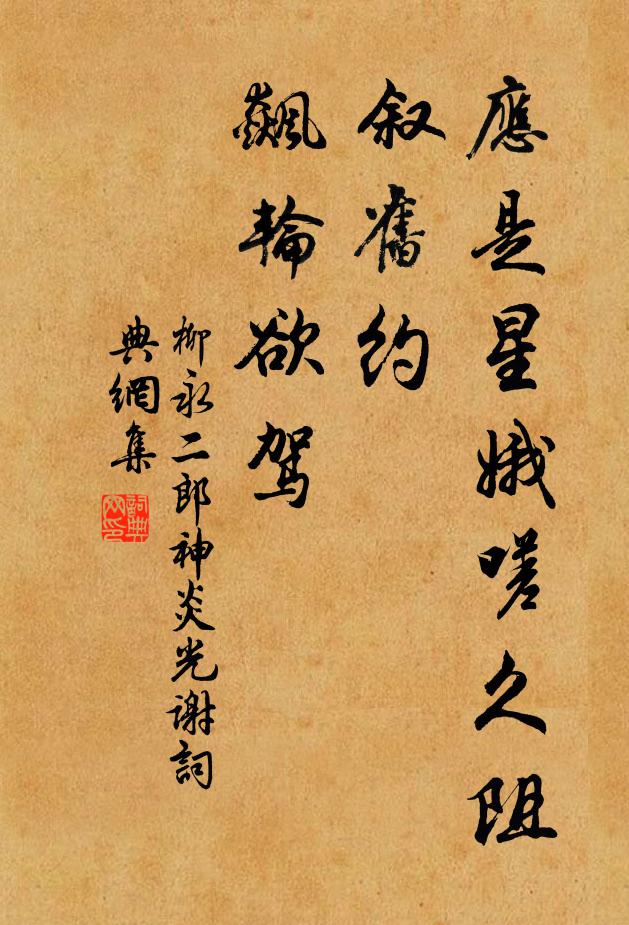 應是星娥嗟久阻
叙舊約
飆輪欲駕
柳永二郎神炎光謝詞
典網集
詞典網印